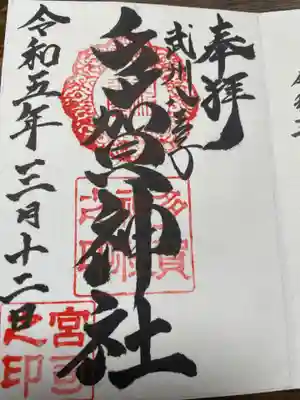 奉拝
武州八王子
多賀神社
令和五年三月十二日
多賀
神社
之印
宮司
之印